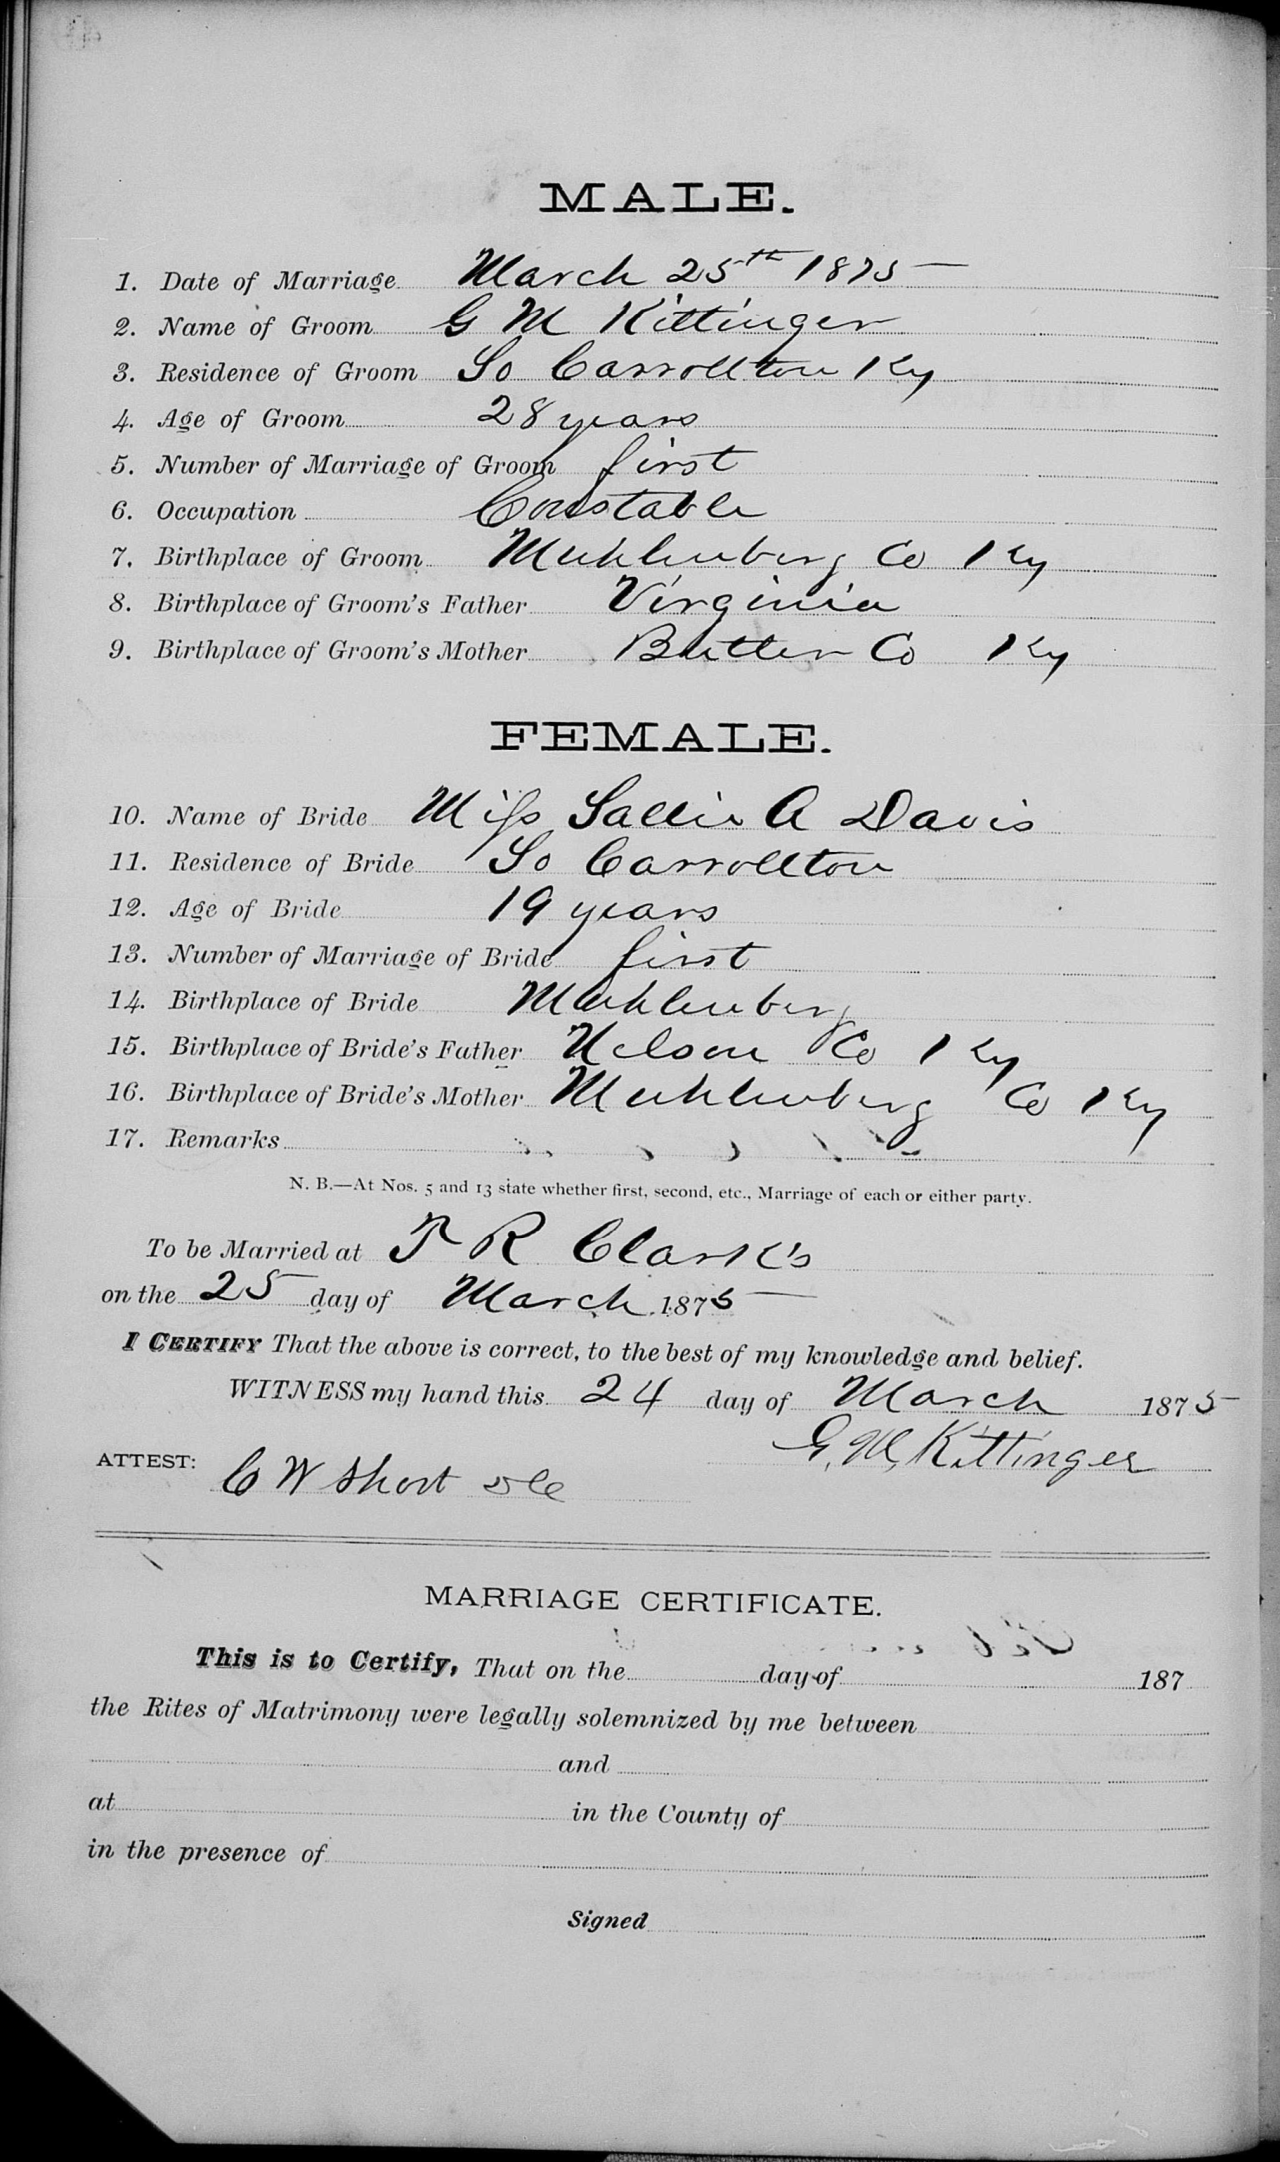 MALE.
1. Date of Marriage March 25th 1875
2. Name of Groom G M Kittinger
3. Residence of Groom So Carrollton Ky
4. Age of Groom 28 years
5. Number of Marriage of Groom first
6. Occupation Constable
7. Birthplace of Groom Muhlenberg Co Ky
8. Birthplace of Groom's Father Virginia
9. Birthplace of Groom's Mother Butler Co Ky
FEMALE.
10. Name of Bride Miss Sallie A Davis
11. Residence of Bride So Carrollton
12. Age of Bride 19 years
13. Number of Marriage of Bride first
14. Birthplace of Bride Muhlenberg
15. Birthplace of Bride's Father Nelson Co Ky
16. Birthplace of Bride's Mother Muhlenberg Co Ky
17. Remarks
N. B.—At Nos. 5 and 13 state whether first, second, etc., Marriage of each or either party.
To be Married at T R Clark's
on the 25 day of March 1875
I CERTIFY That the above is correct, to the best of my knowledge and belief.
WITNESS my hand this 24 day of March 1875
G. M. Kittinger
ATTEST: C W Short
MARRIAGE CERTIFICATE.
This is to Certify, That on the day of 187
the Rites of Matrimony were legally solemnized by me between
and
at in the County of
in the presence of
Signed